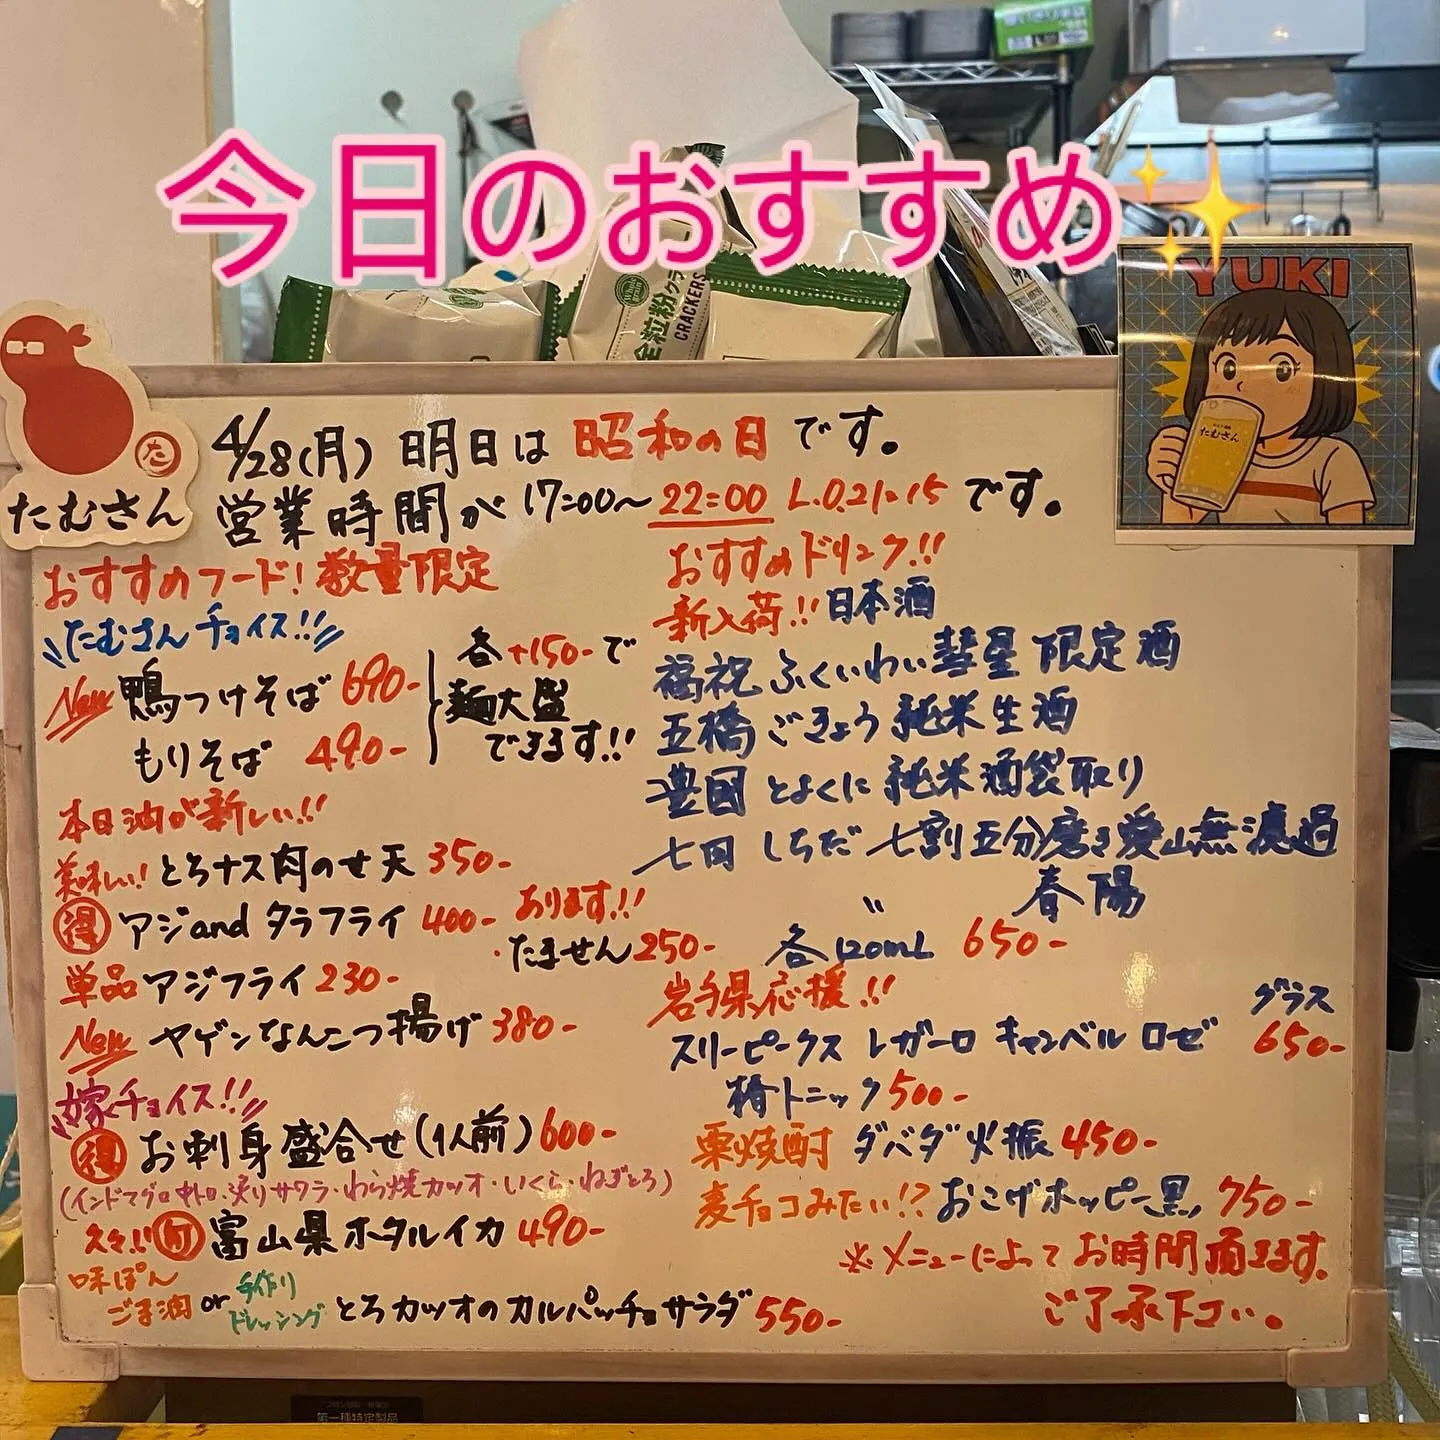 今日のおすすめ✨
全粒粉クラ
CRACKERS
YUKI
たむさん
た
たむさん
4/28(月) 明日は 昭和の日 です。
営業時間が 17:00〜 22:00 L.O.21:15 です。
おすすめフード! 数量限定
たむさんチョイス!!
New 鴨つけそば 690-
もりそば 490-
各+150-で
麺大盛
できます!!
本日油が新しい!!
美味しい! とろナス肉のせ天 350-
得 アジand タラフライ 400-
あります!!
・たません 250-
単品 アジフライ 230-
New ヤゲンなんこつ揚げ 380-
嫁チョイス!!
得 お刺身盛合せ(1人前) 600-
(インドマグロ中トロ・炙りサワラ・わら焼カツオ・いくら・ねぎとろ)
久々!! 富山県ホタルイカ 490-
味ぽん
ごま油 or 手作り
ドレッシング
とろカツオのカルパッチョサラダ 550-
おすすめドリンク!!
新入荷!! 日本酒
福祝 ふくいわい 彗星 限定酒
五橋 ごきょう 純米生酒
豊國 とよくに 純米酒袋取り
七田 しちだ 七割五分磨き愛山無濾過
〃 春陽
各120mL 650-
岩手県応援!!
グラス
スリーピークス レガーロ キャンベル ロゼ 650-
椿トニック 500-
栗焼酎 ダバダ火振 450-
麦チョコみたい!? おこげホッピー黒 750-
※メニューによってお時間頂きます。
ご了承下さい。
第一種特定製品